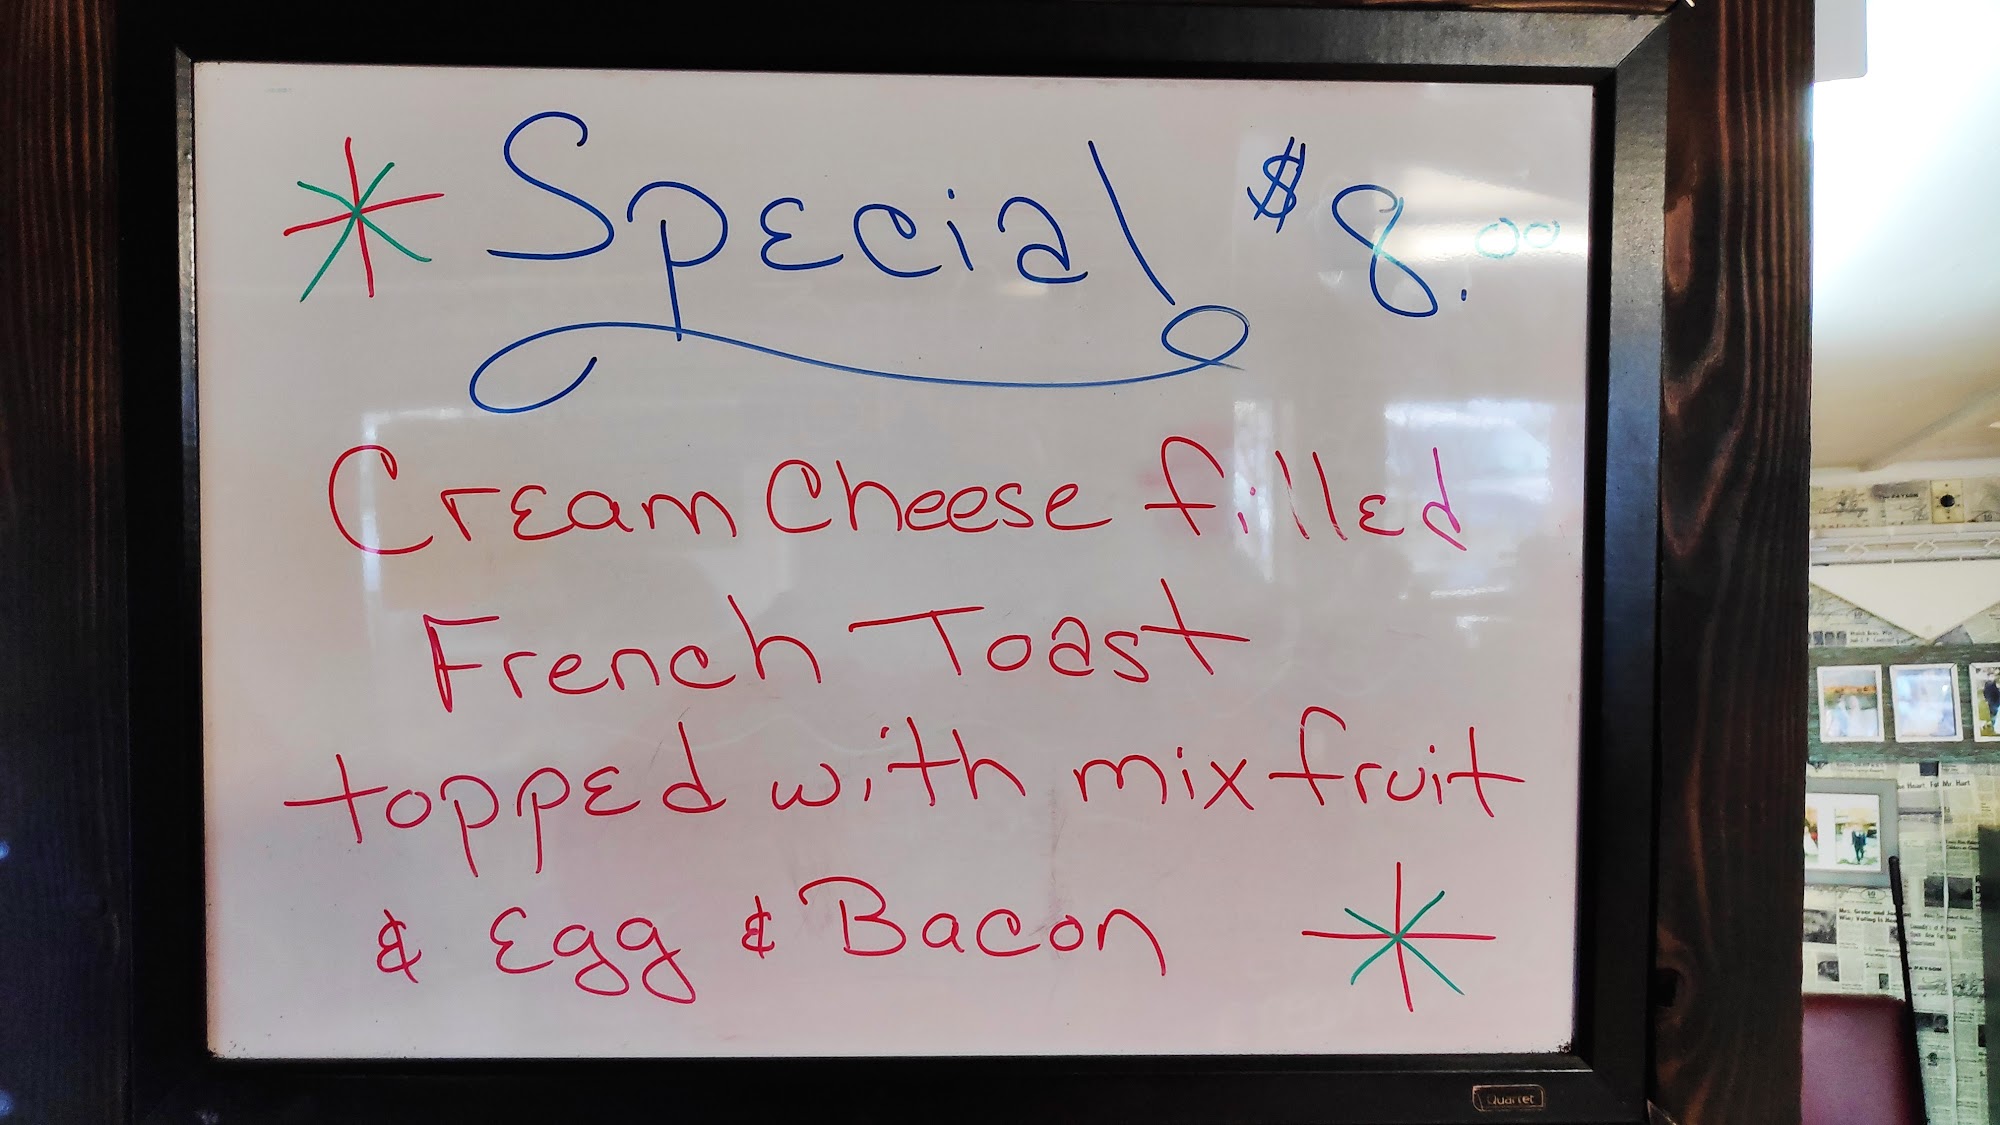 Special $8.00
Cream Cheese filled
French Toast
topped with mix fruit
& Egg & Bacon
Quartet